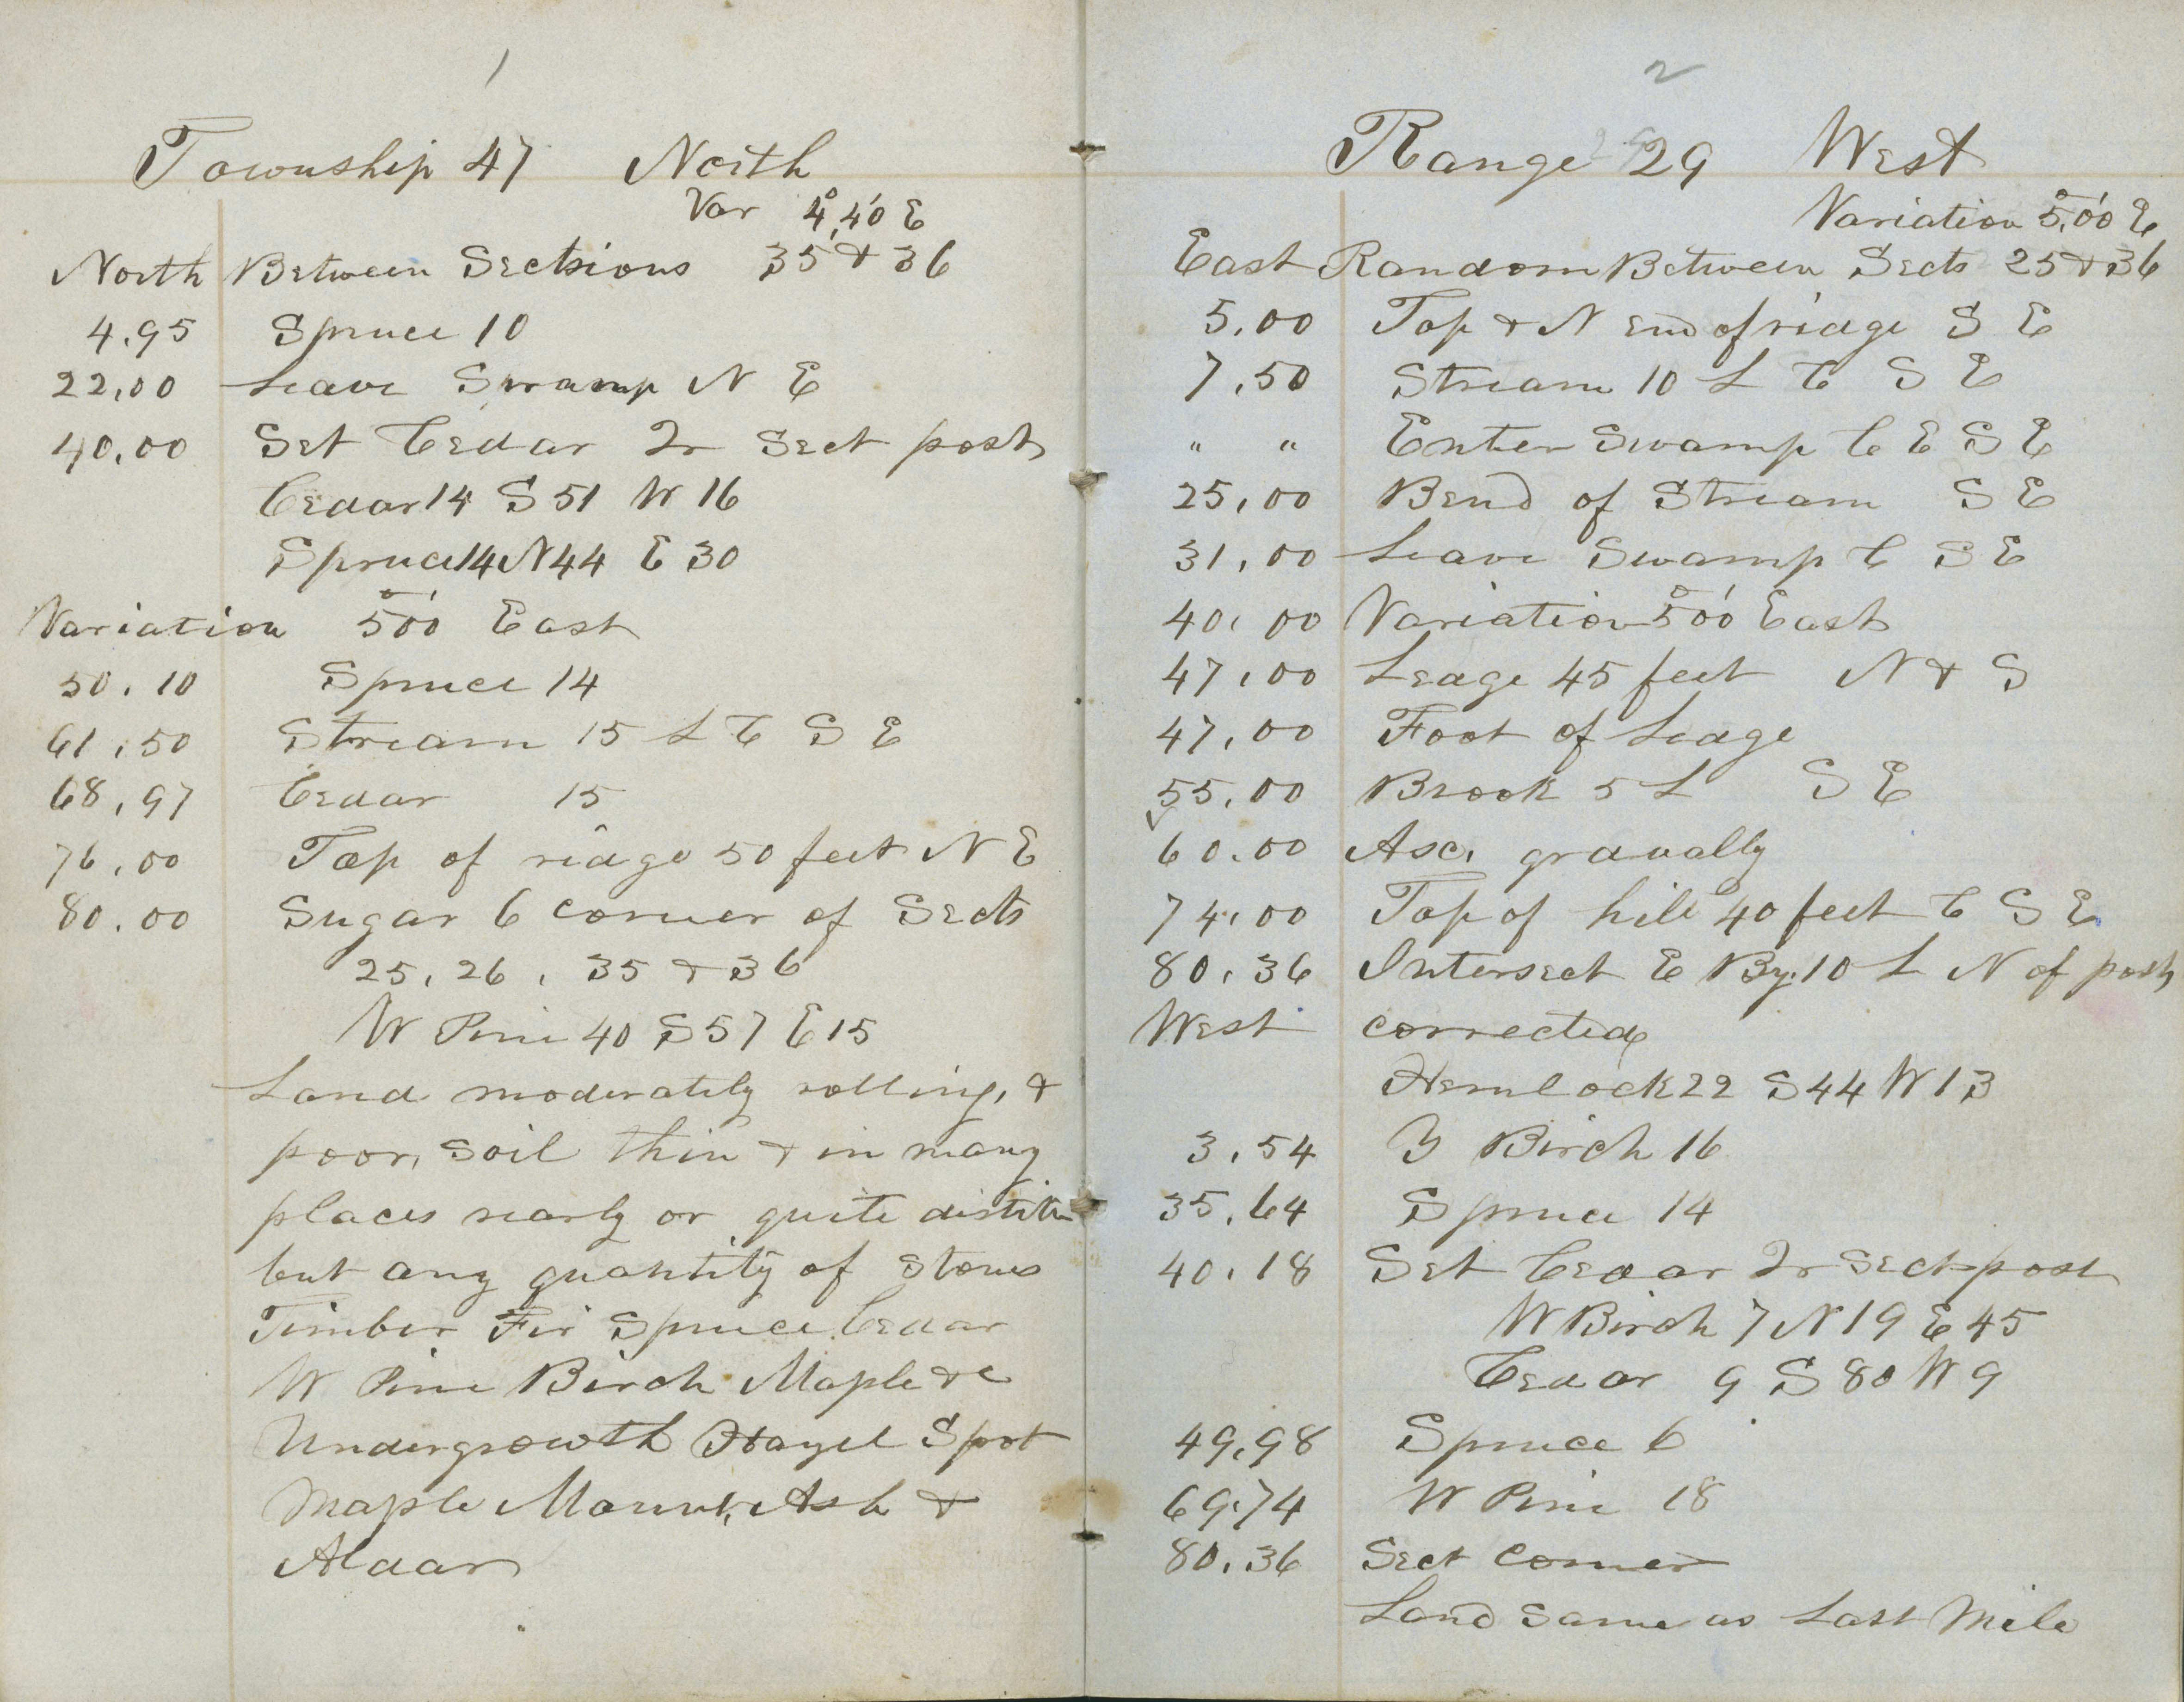 1
Township 47 North
Var 4°,40' E
North Between Sections 35 & 36
4.95 Spruce 10
22,00 Leave Swamp N E
40,00 Set Cedar Qr Sect post
Cedar 14 S 51 W 16
Spruce 14 N 44 E 30
Variation 5°00' East
50.10 Spruce 14
61,50 Stream 15 L C S E
68,97 Cedar 15
76,00 Top of ridge 50 feet N E
80.00 Sugar 6 corner of Sects
25, 26, 35 & 36
W Pine 40 S 57 E 15
Land moderately rolling, &
poor, soil thin & in many
places nearly or quite
but any quantity of stones
Timber Fir Spruce Cedar
W Pine Birch Maple &c
Undergrowth Hazel Spot
Maple Mount, Ash &
Aldar
2
Range 29 West
Variation 5°,00' E
East Random Between Sects 25 & 36
5,00 Top & N end of ridge S E
7,50 Stream 10 L C S E
" " Enter Swamp C E S E
25,00 Bend of Stream S E
31,00 Leave Swamp C S E
40,00 Variation 5°00' East
47,00 Ledge 45 feet N & S
47,00 Foot of Ledge
55,00 Brook 5 L S E
60.00 Asc, gradually
74,00 Top of hill 40 feet C S E
80,36 Intersect E By. 10 L N of post
West corrected
Hemlock 22 S 44 W 13
3,54 Y Birch 16
35,64 Spruce 14
40,18 Set Cedar Qr Sect post
W Birch 7 N 19 E 45
Cedar 9 S 80 W 9
49,98 Spruce 6
69,74 W Pine 18
80,36 Sect Corner
Land same as Last Mile